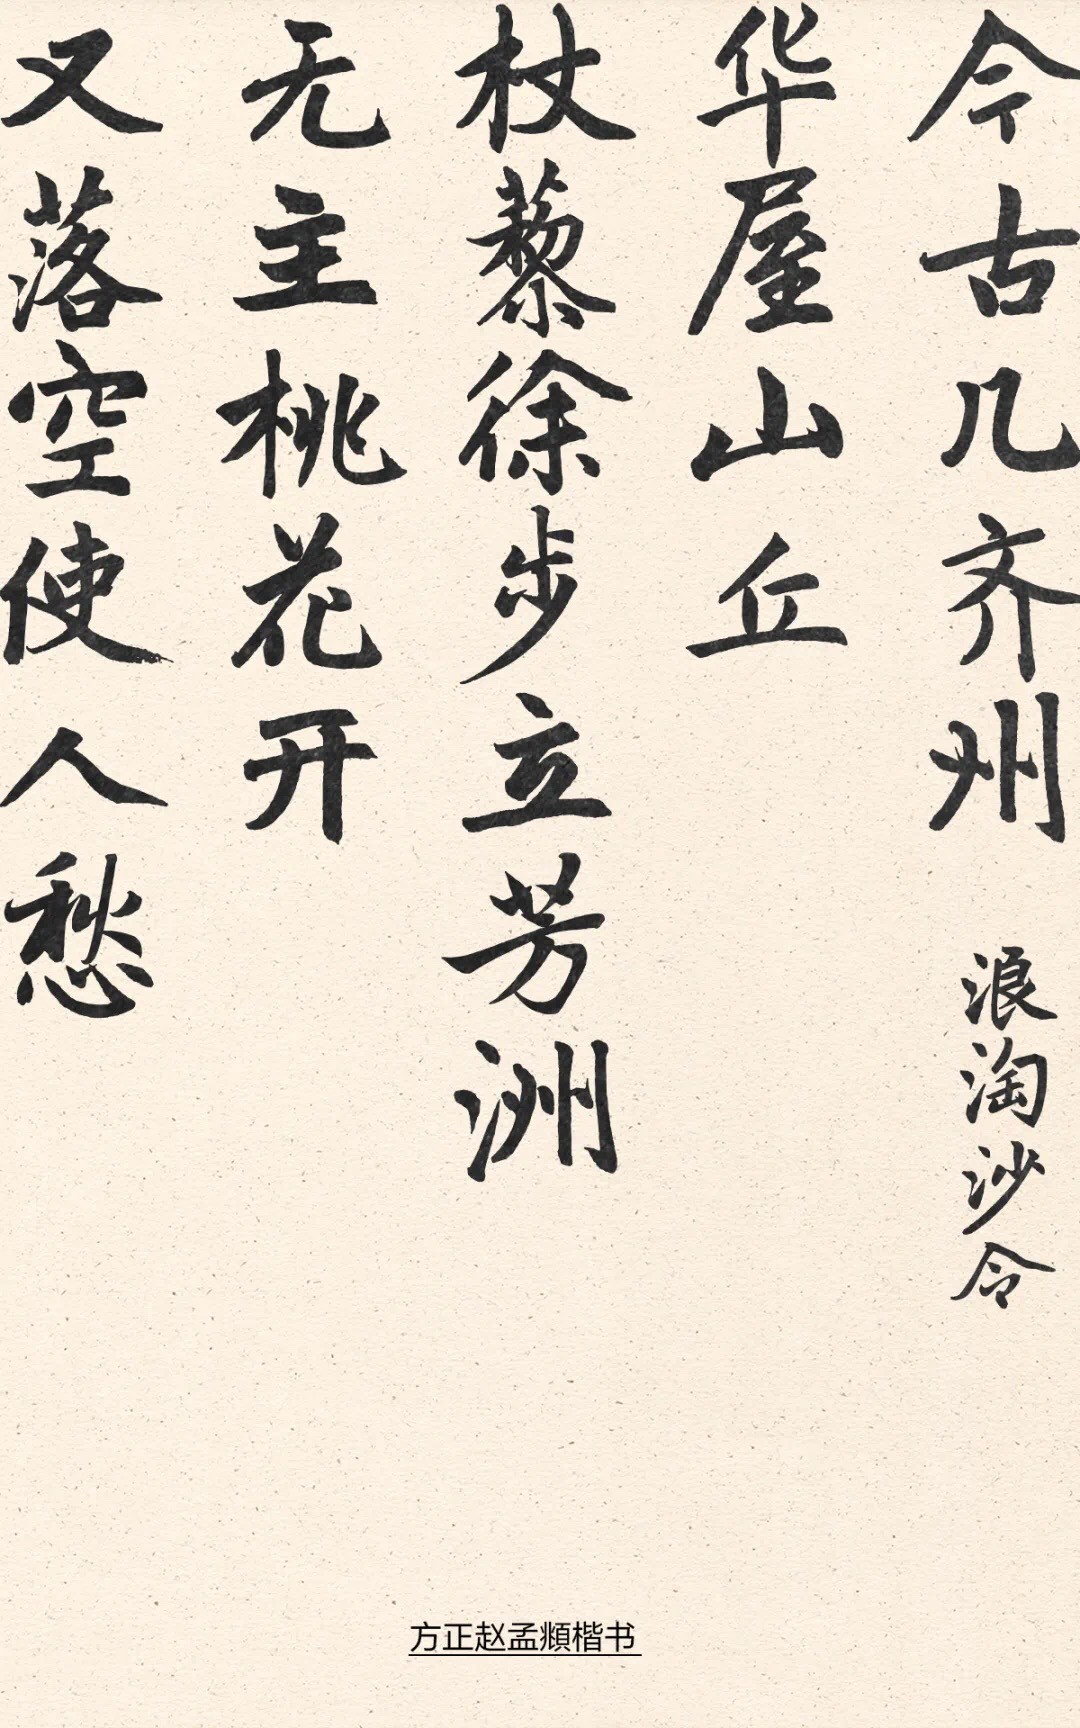 今古几齐州
浪淘沙令
华屋山丘
杖藜徐步立芳洲
无主桃花开
又落空使人愁
方正赵孟頫楷书